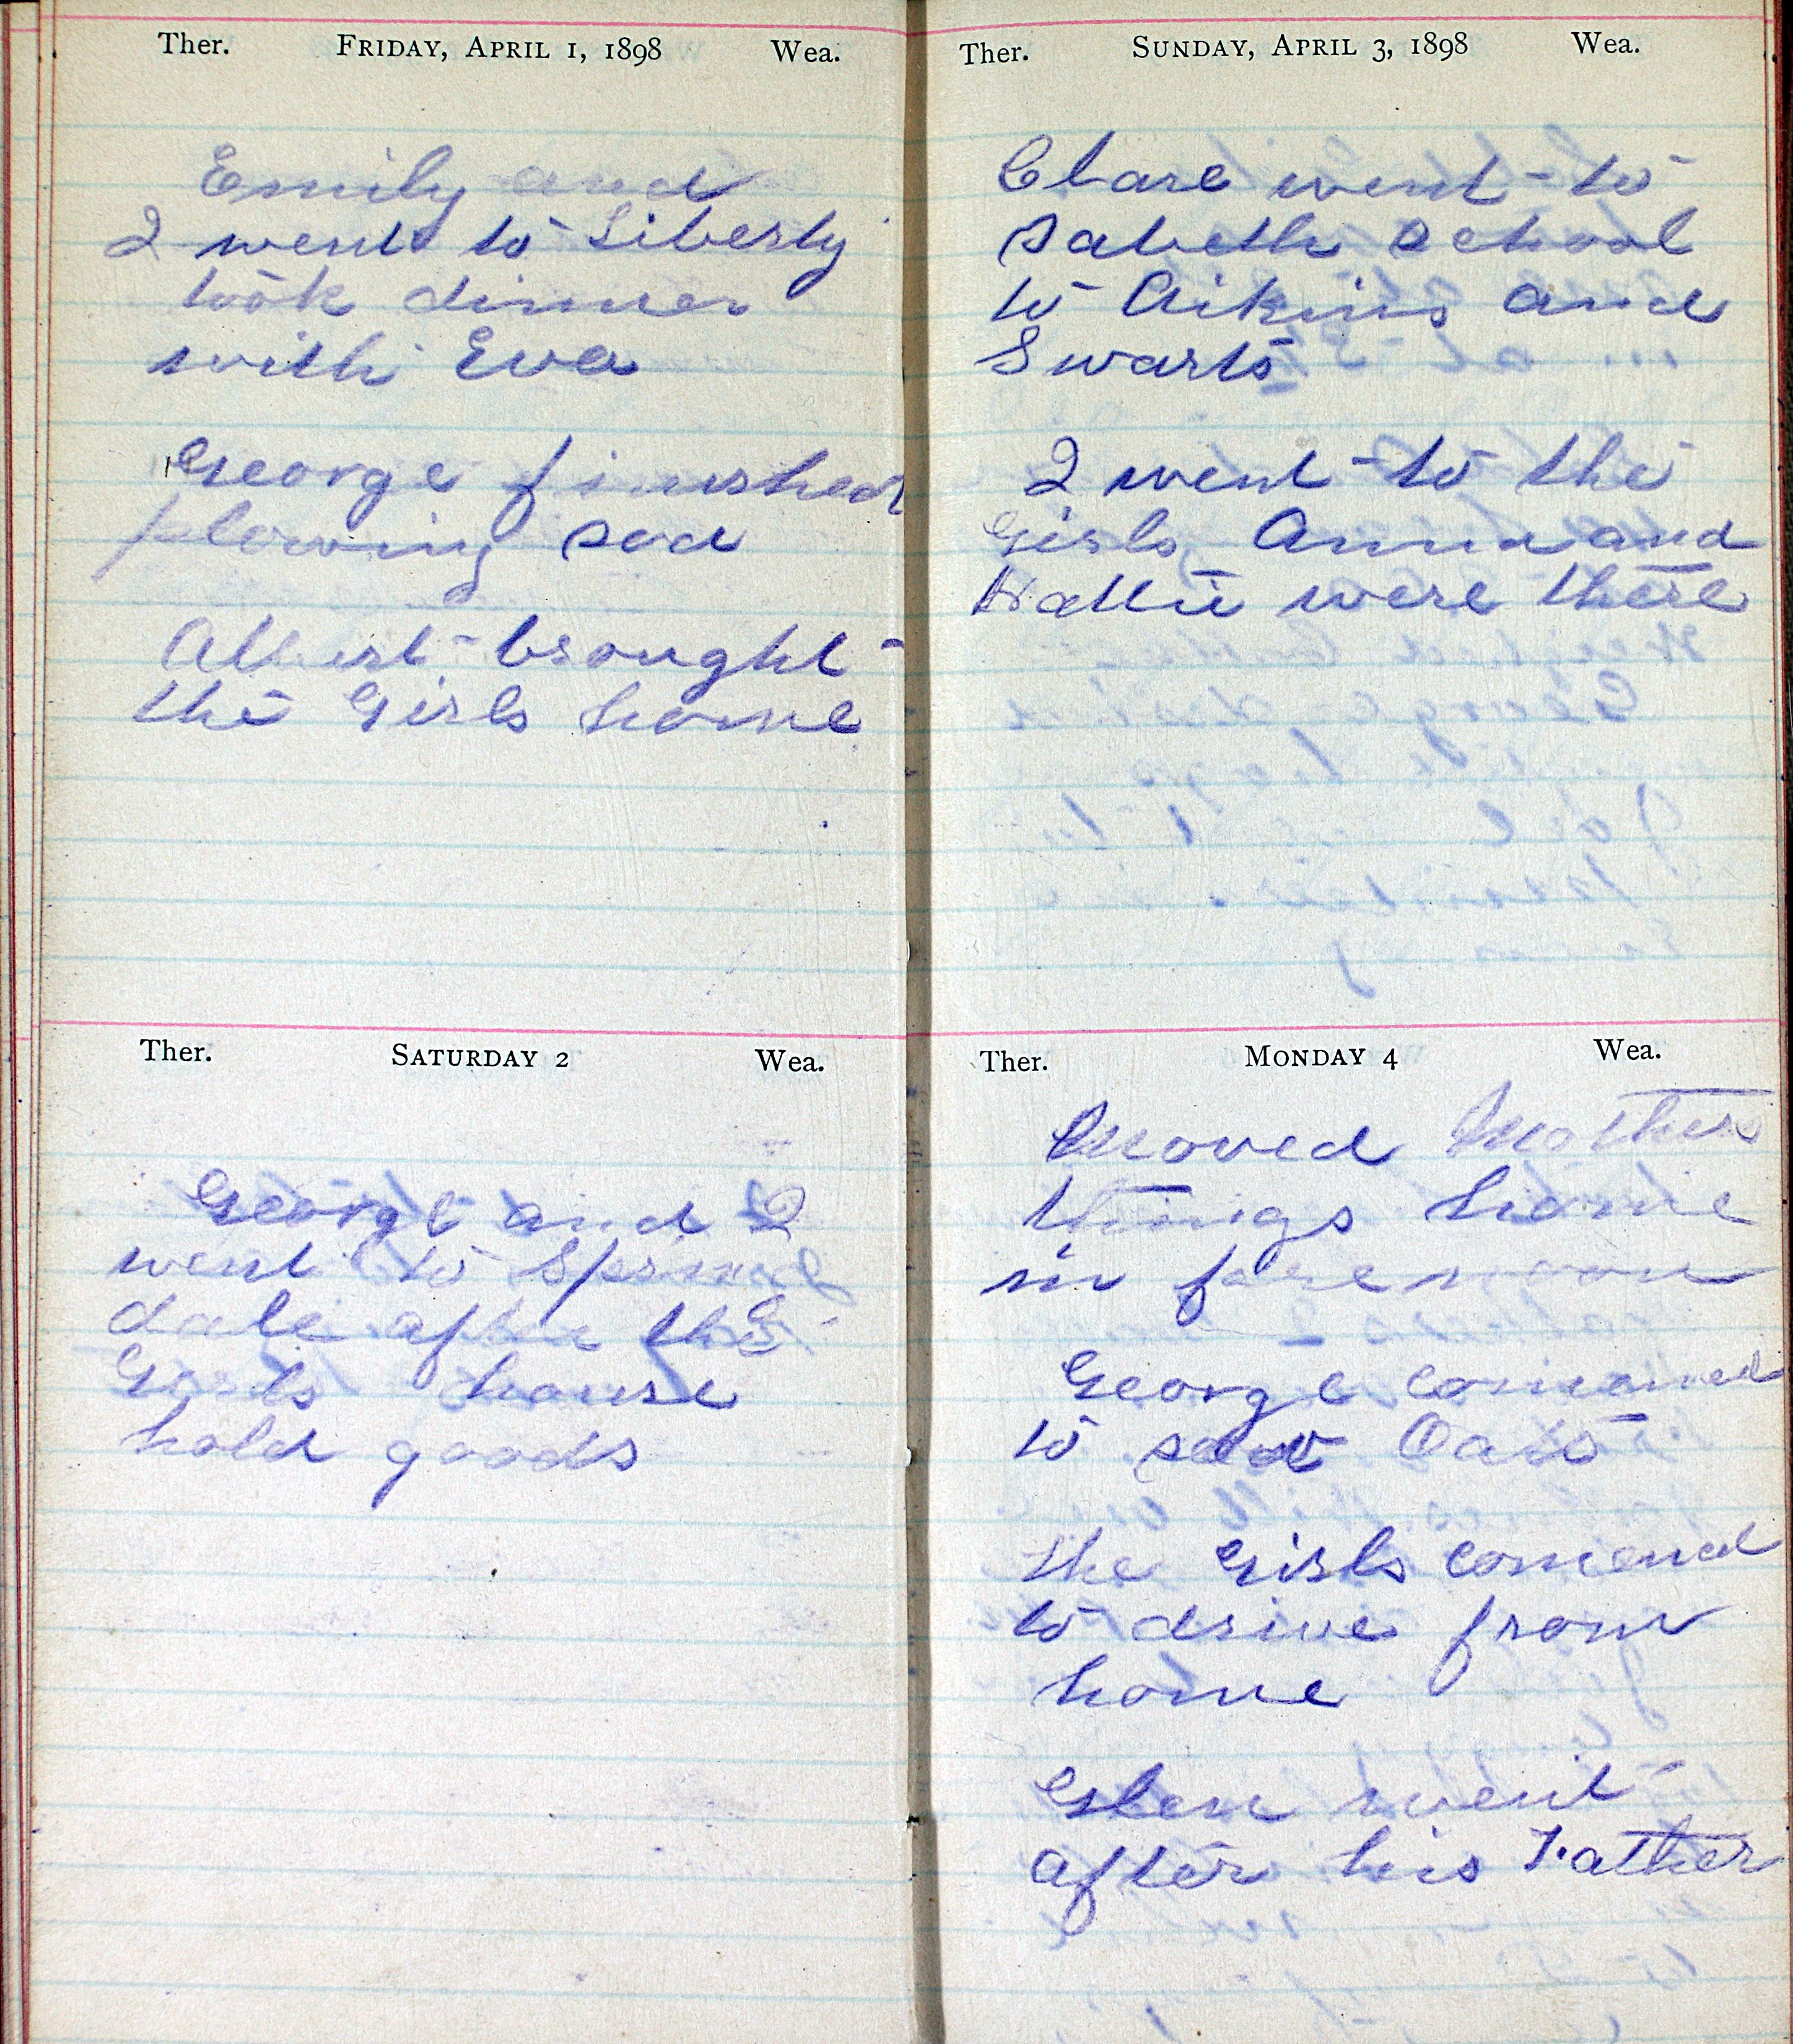 Ther. FRIDAY, APRIL 1, 1898 Wea.
Emily and
I went to Liberty
took dinner
with Eva
George finished
plowing sod
Albert brought
the Girls home
Ther. SATURDAY 2 Wea.
George and I
went to Spring
dale after the
Girls house
hold goods
Ther. SUNDAY, APRIL 3, 1898 Wea.
Clare went to
Sabeth School
to Aikins and
Swarts
I went to the
Girls Anna and
Hattie were there
Ther. MONDAY 4 Wea.
Moved Mothers
things home
in forenoon
George comened
to sow Oats
the Girls comened
to drive from
home
Glen went
after his Father